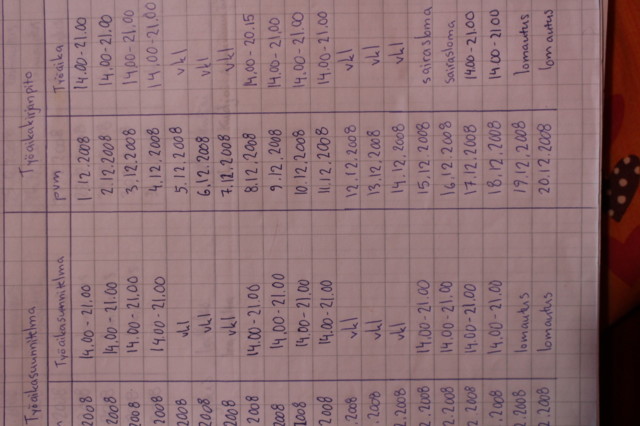 Työaikasuunnitelma Työaikakirjanpito
Työaikasuunnitelma pvm Työaika
2008 14.00-21.00 1.12.2008 14.00-21.00
2008 14.00-21.00 2.12.2008 14.00-21.00
2008 14.00-21.00 3.12.2008 14.00-21.00
2008 14.00-21.00 4.12.2008 14.00-21.00
2008 vkl 5.12.2008 vkl
2008 vkl 6.12.2008 vkl
2008 vkl 7.12.2008 vkl
2008 14.00-21.00 8.12.2008 14.00-20.15
2008 14.00-21.00 9.12.2008 14.00-21.00
2008 14.00-21.00 10.12.2008 14.00-21.00
2008 14.00-21.00 11.12.2008 14.00-21.00
.2008 vkl 12.12.2008 vkl
.2008 vkl 13.12.2008 vkl
2.2008 vkl 14.12.2008 vkl
2.2008 14.00-21.00 15.12.2008 sairasloma
2.2008 14.00-21.00 16.12.2008 sairasloma
2.2008 14.00-21.00 17.12.2008 14.00-21.00
.2008 14.00-21.00 18.12.2008 14.00-21.00
2.2008 lomautus 19.12.2008 lomautus
2.2008 lomautus 20.12.2008 lomautus